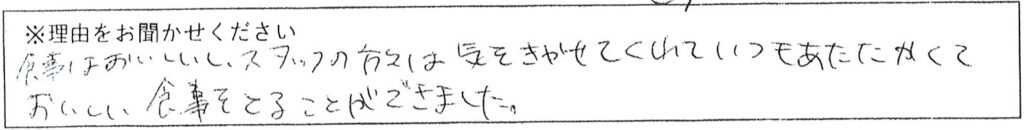 ※理由をお聞かせください
食事はおいしいし、スタッフの方々は気をきかせてくれていつもあたたかくて
おいしい食事をとることができました。